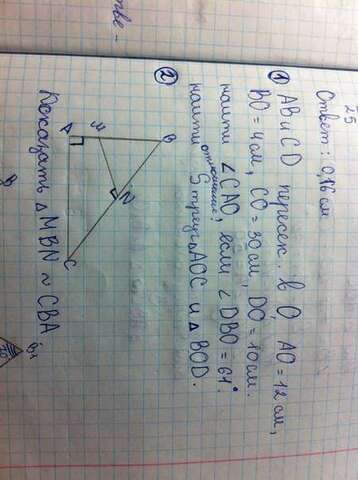 25
Ответ: 0,16 см
① AB и CD пересек. в O, AO = 12 см,
BO = 4 см, CO = 30 см, DO = 10 см.
найти ∠CAO, если ∠DBO = 61°.
найти отношение S треуг △AOC и △BOD.
②
B
M
N
A
C
Доказать △MBN ~ CBA